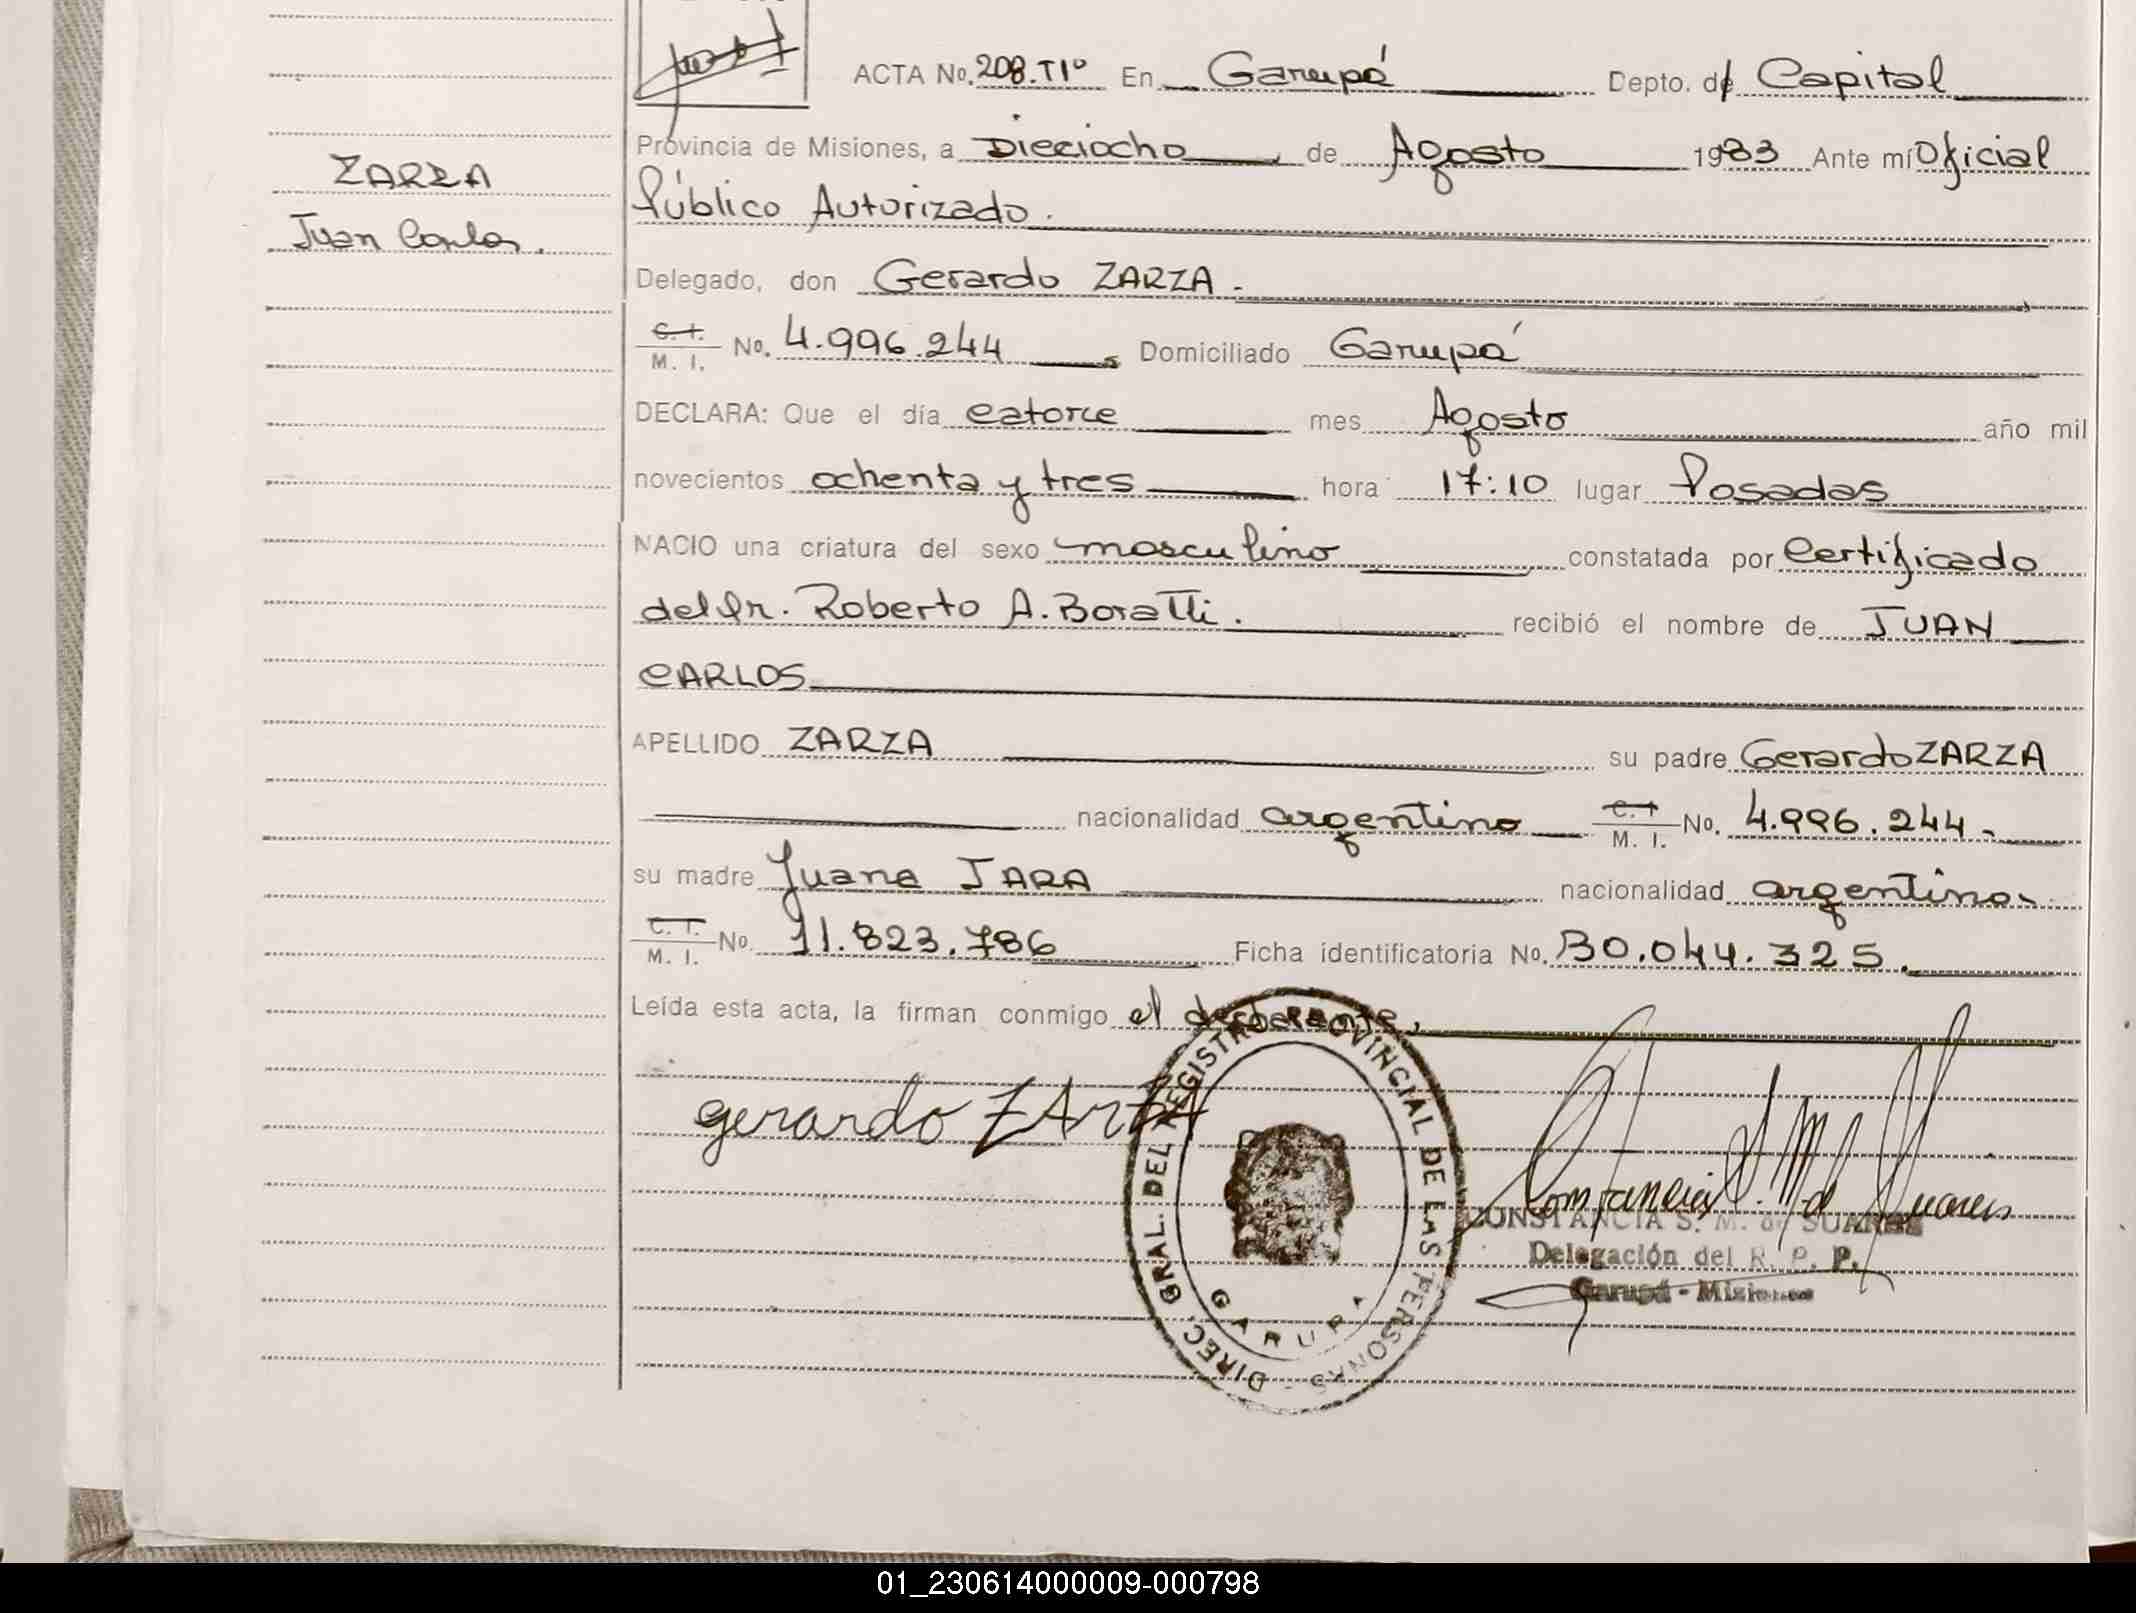 ACTA No. 208.TIº En Garupá Depto. de Capital
Provincia de Misiones, a Dieciocho de Agosto 1983 Ante mí Oficial
ZARZA
Público Autorizado.
Juan Carlos.
Delegado, don Gerardo ZARZA.
C. I. M. I. No. 4.996.244 Domiciliado Garupá
DECLARA: Que el día catorce mes Agosto año mil
novecientos ochenta y tres hora 17:10 lugar Posadas
NACIO una criatura del sexo masculino constatada por Certificado
del Dr. Roberto A. Boratti. recibió el nombre de JUAN
CARLOS
APELLIDO ZARZA su padre Gerardo ZARZA
nacionalidad argentino C. I. M. I. No. 4.996.244.
su madre Juana JARA nacionalidad argentina.
C. I. M. I. No. 11.823.786 Ficha identificatoria No. 30.044.325.
Leída esta acta, la firman conmigo el declarante,
gerardo ZArzA
DIREC. GRAL. DEL REGISTRO PROVINCIAL DE LAS PERSONAS -
GARUPA
Constancia S. M. de Suarez
CONSTANCIA S. M. de SUAREZ
Delegación del R. P. P.
Garupá - Misiones
01_230614000009-000798